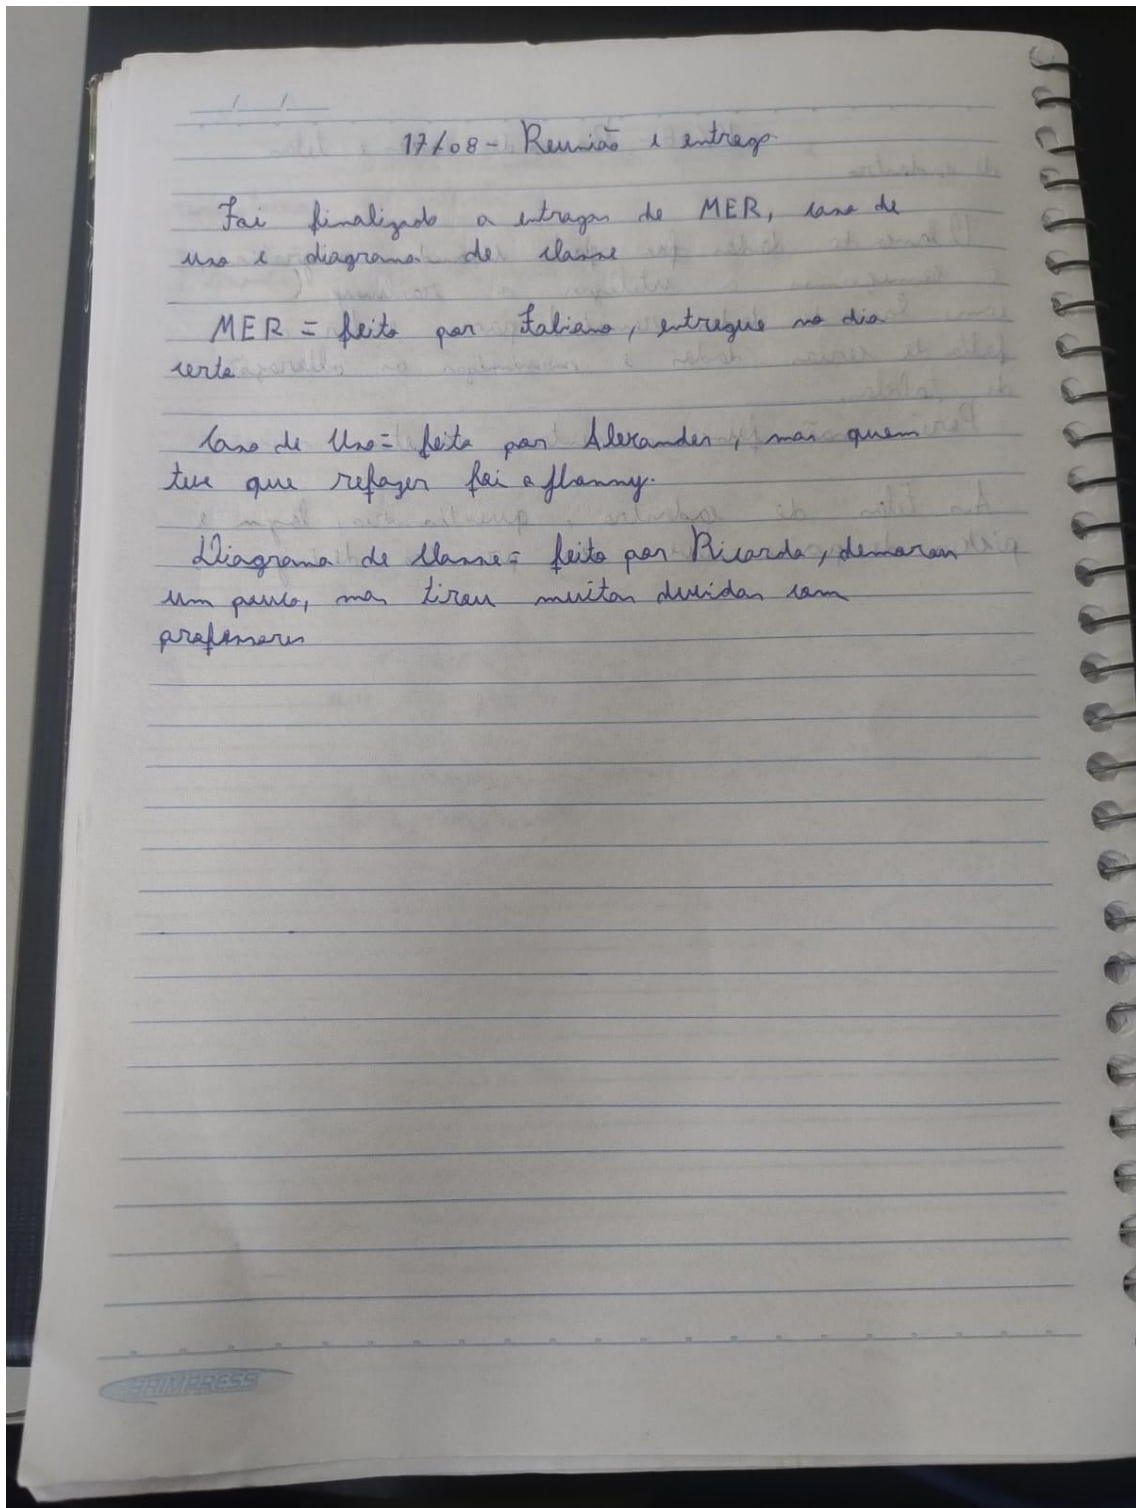 17/08 - Reunião e entrega
Foi finalizado a entragas de MER, caso de
uso e diagrama de classe
MER = feito por Fabiano, entregue no dia
certo
Caso de Uso = feito por Alexander, mas quem
teve que refazer foi a flanny.
Diagrama de Classe = feito por Ricardo, demorou
um pouco, mas tirou muitas duvidas com
professores
BRIMPRESS